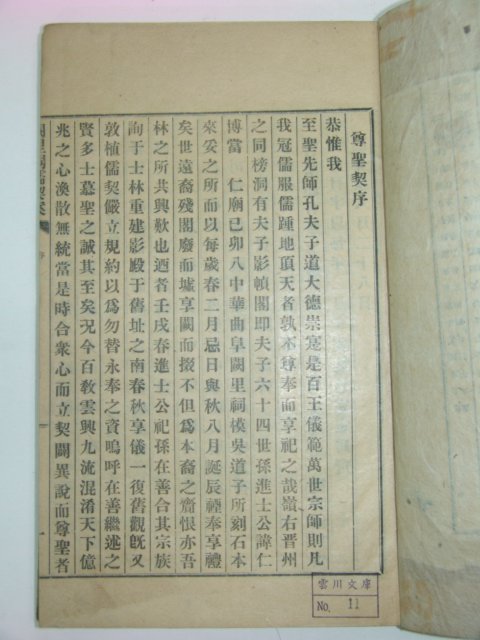 尊聖契序
恭惟我
至聖先師孔夫子道大德崇寔是百王儀範萬世宗師則凡
我冠儒服儒踵地頂天者孰不尊奉而享祀之哉嶺右晉州
之同榜洞有夫子影幀閣即夫子六十四世孫進士公諱仁
博當 仁廟己卯入中華曲阜闕里祠模吳道子所刻石本
來妥之所而以每歲春二月忌日與秋八月誕辰禋奉享禮
矣世遠裔殘閣廢而墟享闕而掇不但爲本裔之齎恨亦吾
林之所共興歎也迺者壬戌春進士公祀孫在善合其宗族
詢于士林重建影殿于舊址之南春秋享儀一復舊觀旣又
敦植儒契嚴立規約以爲勿替永奉之資嗚呼在善繼述之
賢多士慕聖之誠其至矣况今百敎雲興九流混淆天下億
兆之心渙散無統當是時合衆心而立契闢異說而尊聖者
序
一
雲川文庫
No. 11